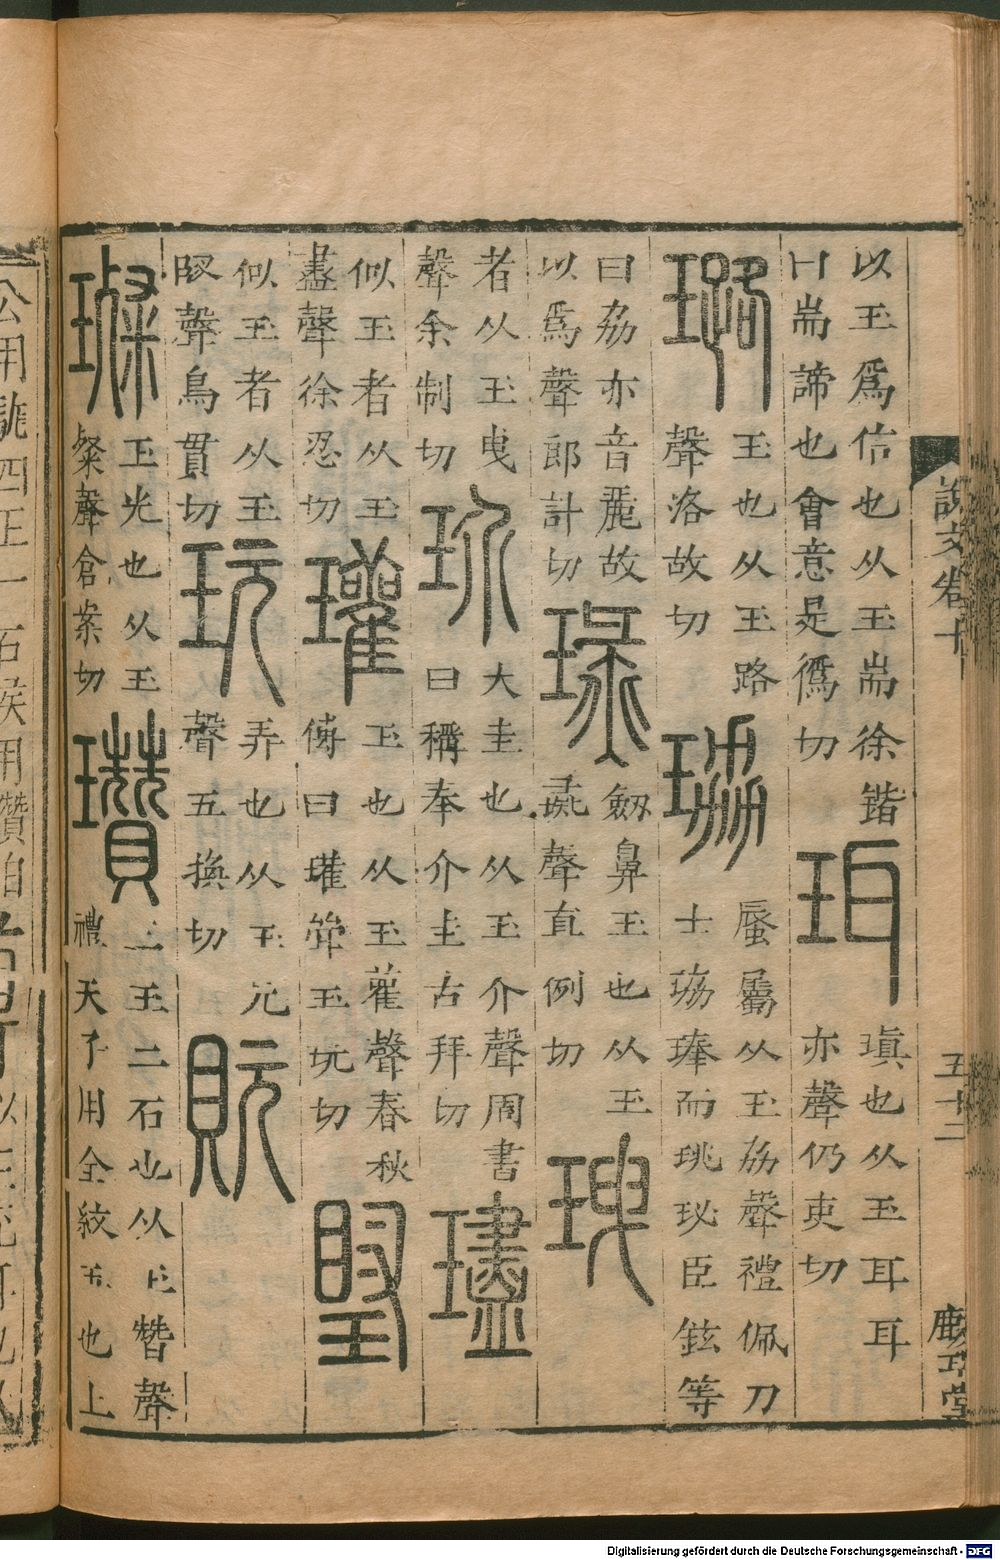 以玉爲信也从玉耑徐鍇
曰耑諦也會意是僞切
珥
瑱也从玉耳耳
亦聲仍吏切
璐
玉也从玉路
聲洛故切
珕
蜃屬从玉劦聲禮佩刀
士珕琫而珧珌臣鉉等
曰劦亦音麗故
以爲聲郎計切
璏
劒鼻玉也从玉
彘聲直例切
瑰
者从玉曳
聲余制切
玠
大圭也从玉介聲周書
曰稱奉介圭古拜切
璶
似玉者从玉
盡聲徐忍切
瓘
玉也从玉雚聲春秋
傳曰瓘斝玉玩切
似玉者从玉
臤聲烏貫切
玩
弄也从玉元
聲五換切
貦
璨
玉光也从玉
粲聲倉案切
瓚
三玉二石也从玉贊聲
禮天子用全紋玉也上
說文卷十
五十二
公用駹四玉一石侯用瓚伯
Digitalisierung gefördert durch die Deutsche Forschungsgemeinschaft - DFG